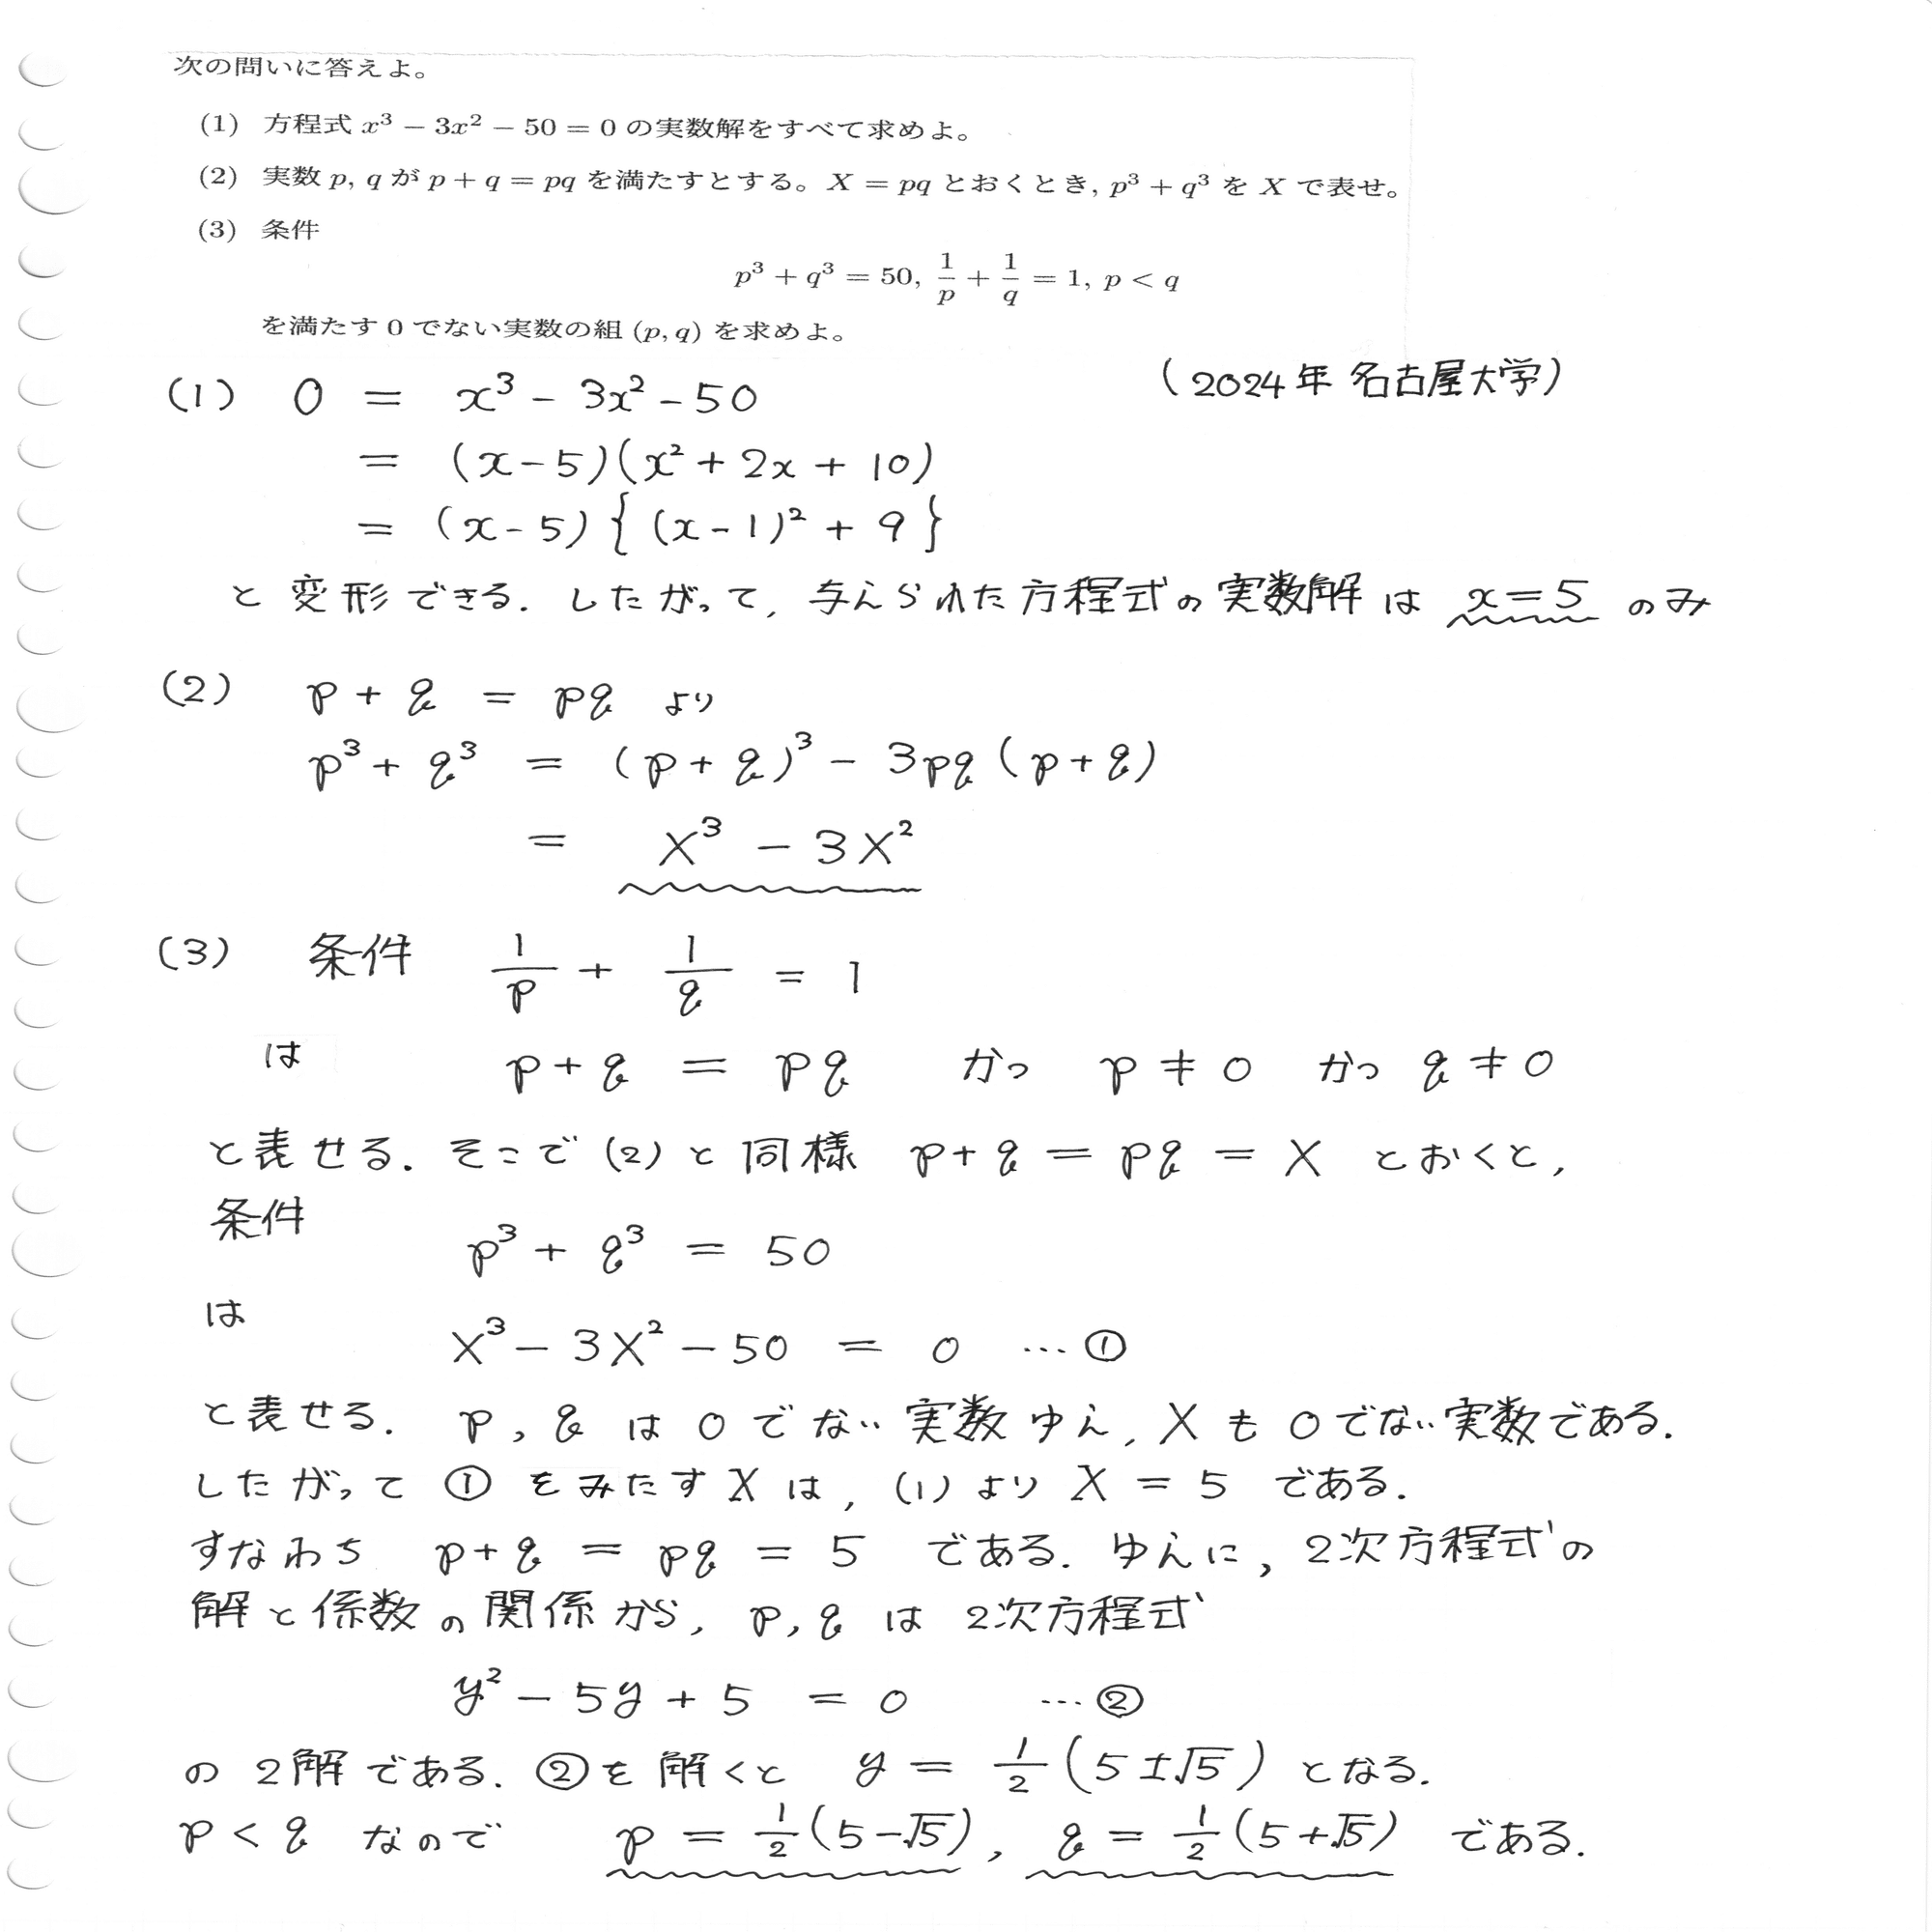 次の問いに答えよ。
(1) 方程式 x³ − 3x² − 50 = 0 の実数解をすべて求めよ。
(2) 実数 p, q が p + q = pq を満たすとする。X = pq とおくとき, p³ + q³ を X で表せ。
(3) 条件
p³ + q³ = 50, 1/p + 1/q = 1, p < q
を満たす 0 でない実数の組 (p, q) を求めよ。
(2024年 名古屋大学)
(1) 0 = x³ − 3x² − 50
= (x−5)(x² + 2x + 10)
= (x−5){(x−1)² + 9}
と変形できる. したがって, 与えられた方程式の実数解は x=5 のみ
(2) p + q = pq より
p³ + q³ = (p + q)³ − 3pq(p + q)
= X³ − 3X²
(3) 条件 1/p + 1/q = 1
は p + q = pq かつ p ≠ 0 かつ q ≠ 0
と表せる. そこで (2) と同様 p+q = pq = X とおくと,
条件
p³ + q³ = 50
は
X³ − 3X² − 50 = 0 … ①
と表せる. p, q は 0 でない実数ゆえ, X も 0 でない実数である.
したがって ① をみたす X は, (1) より X = 5 である.
すなわち p+q = pq = 5 である. ゆえに, 2次方程式の
解と係数の関係から, p, q は 2次方程式
y² − 5y + 5 = 0 … ②
の 2解である. ②を解くと y = 1/2 (5 ± √5) となる.
p < q なので p = 1/2 (5−√5), q = 1/2 (5+√5) である.